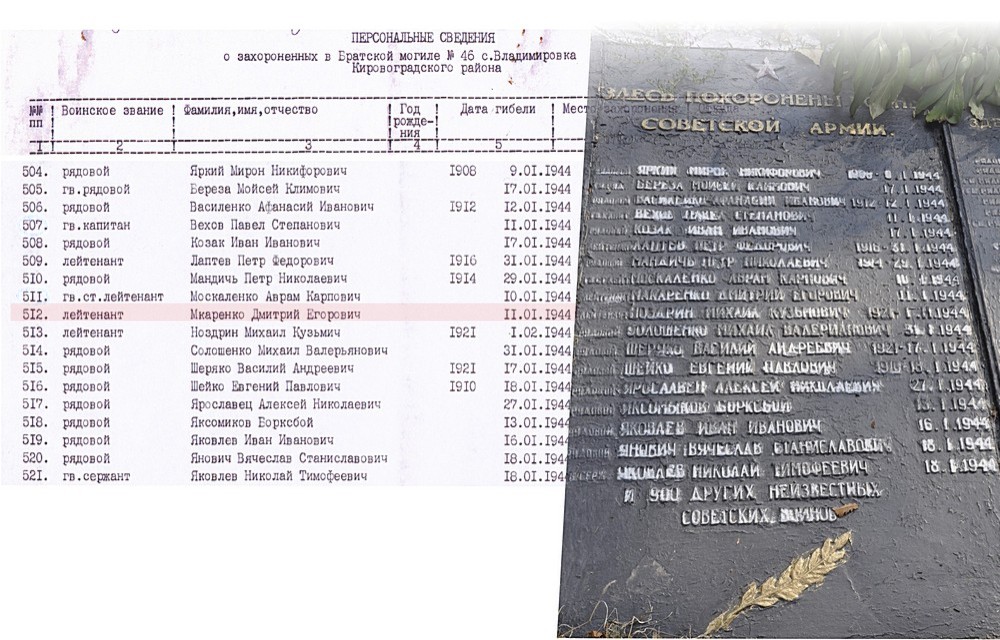 ПЕРСОНАЛЬНЫЕ СВЕДЕНИЯ
о захороненных в Братской могиле № 46 с.Владимировка
Кировоградского района
№№ пп Воинское звание Фамилия,имя,отчество Год рожде-ния Дата гибели Мест
I 2 3 4 5
504. рядовой Яркий Мирон Никифорович I908 9.OI.I944
505. гв.рядовой Береза Мойсей Климович I7.OI.I944
506. рядовой Василенко Афанасий Иванович I9I2 I2.OI.I944
507. гв.капитан Вехов Павел Степанович II.OI.I944
508. рядовой Козак Иван Иванович I7.OI.I944
509. лейтенант Лаптев Петр Федорович I9I6 3I.OI.I944
5IO. рядовой Мандичь Петр Николаевич I9I4 29.OI.I944
5II. гв.ст.лейтенант Москаленко Аврам Карпович IO.OI.I944
5I2. лейтенант Мкаренко Дмитрий Егорович II.OI.I944
5I3. лейтенант Ноздрин Михаил Кузьмич I92I I.02.I944
5I4. рядовой Солошенко Михаил Валерьянович 3I.OI.I944
5I5. рядовой Шеряко Василий Андреевич I92I I7.OI.I944
5I6. рядовой Шейко Евгений Павлович I9IO I8.OI.I944
5I7. рядовой Ярославец Алексей Николаевич 27.OI.I944
5I8. рядовой Яксомиков Борксбой I3.OI.I944
5I9. рядовой Яковлев Иван Иванович I6.OI.I944
520. рядовой Янович Вячеслав Станиславович I8.OI.I944
52I. гв.сержант Яковлев Николай Тимофеевич I8.OI.I944
ЗДЕСЬ ПОХОРОНЕНЫ
СОВЕТСКОЙ АРМИИ.
ЯРКИЙ МИРОН НИКИФОРОВИЧ
БЕРЕЗА МОЙСЕЙ КЛИМОВИЧ 17.1.1944
ВАСИЛЕНКО АФАНАСИЙ ИВАНОВИЧ 1912 12.1.1944
ВЕХОВ ПАВЕЛ СТЕПАНОВИЧ 11.1.1944
КОЗАК ИВАН ИВАНОВИЧ 17.1.1944
ЛАПТЕВ ПЕТР ФЕДОРОВИЧ 1916 31.1.1944
МАНДИЧЬ ПЕТР НИКОЛАЕВИЧ 1914 29.1.1944
МОСКАЛЕНКО АВРАМ КАРПОВИЧ 10.1.1944
МАКАРЕНКО ДМИТРИЙ ЕГОРОВИЧ 11.1.1944
НОЗДРИН МИХАИЛ КУЗЬМИЧ
СОЛОШЕНКО МИХАИЛ ВАЛЕРИАНОВИЧ 31.1.1944
ШЕРЯКО ВАСИЛИЙ АНДРЕЕВИЧ 1921 17.1.1944
ШЕЙКО ЕВГЕНИЙ ПАВЛОВИЧ 1910 18.1.1944
ЯРОСЛАВЕЦ АЛЕКСЕЙ НИКОЛАЕВИЧ 27.1.1944
БОРКСБОЙ 13.1.1944
ЯКОВЛЕВ ИВАН ИВАНОВИЧ 16.1.1944
ЯНОВИЧ ВЯЧЕСЛАВ СТАНИСЛАВОВИЧ 18.1.1944
ЯКОВЛЕВ НИКОЛАЙ ТИМОФЕЕВИЧ 18.1.1944
И 900 ДРУГИХ НЕИЗВЕСТНЫХ
СОВЕТСКИХ ВОИНОВ